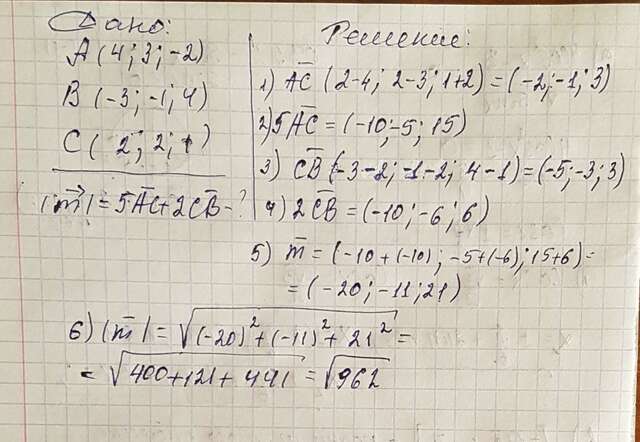 Дано:
A (4; 3; -2)
B (-3; -1; 4)
C ( 2; 2; 1)
|m⃗| = 5A̅C̅+2C̅B̅-?
Решение:
1) A̅C̅ (2-4; 2-3; 1+2) = (-2; -1; 3)
2) 5A̅C̅ = (-10; -5; 15)
3) C̅B̅ (-3-2; -1-2; 4-1) = (-5; -3; 3)
4) 2C̅B̅ = (-10; -6; 6)
5) m̅ = (-10+(-10); -5+(-6); 15+6) =
= (-20; -11; 21)
6) |m̅| = √((-20)²+(-11)²+21²) =
= √(400+121+441) = √962